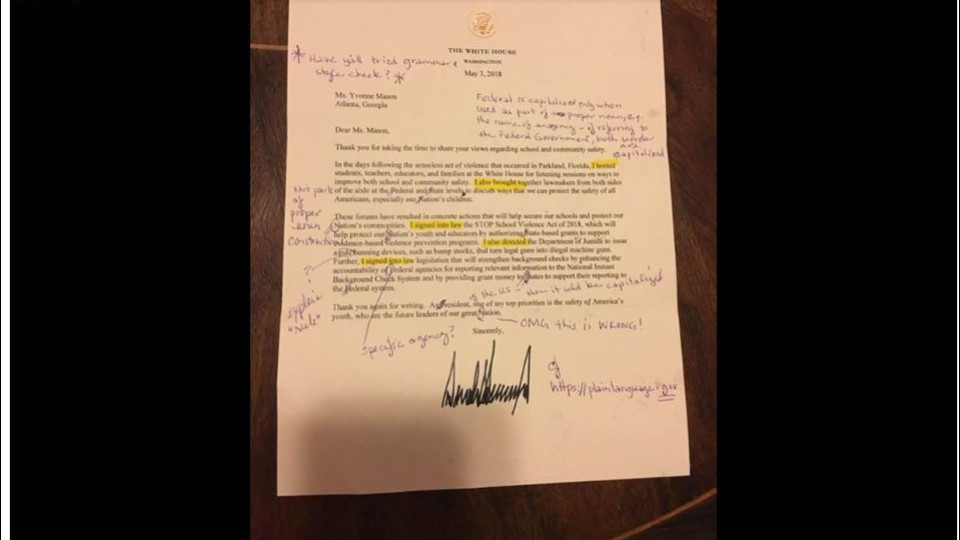 THE WHITE HOUSE
WASHINGTON
May 3, 2018
* Have y'all tried grammar &
style check? *
Ms. Yvonne Mason
Atlanta, Georgia
Federal is capitalized only when
used as part of proper noun, e.g.
the name of agency - if referring to
the Federal Government, both words
are
capitalized
Dear Ms. Mason,
Thank you for taking the time to share your views regarding school and community safety.
In the days following the senseless act of violence that occurred in Parkland, Florida, I hosted
students, teachers, educators, and families at the White House for listening sessions on ways to
improve both school and community safety. I also brought together lawmakers from both sides
of the aisle at the Federal and State levels to discuss ways that we can protect the safety of all
Americans, especially our Nation's children.
Not part
of
proper
noun
construction
These forums have resulted in concrete actions that will help secure our schools and protect our
Nation's communities. I signed into law the STOP School Violence Act of 2018, which will
help protect our Nation's youth and educators by authorizing State-based grants to support
evidence-based violence prevention programs. I also directed the Department of Justice to issue
a rule banning devices, such as bump stocks, that turn legal guns into illegal machine guns.
Further, I signed into law legislation that will strengthen background checks by enhancing the
accountability of Federal agencies for reporting relevant information to the National Instant
Background Check System and by providing grant money to States to support their reporting to
the Federal system.
?
explain
"rule"
of the US - then it would be capitalized
Thank you again for writing. As President, one of my top priorities is the safety of America's
youth, who are the future leaders of our great Nation.
OMG this is WRONG!
Specific agency?
Sincerely,
cf
https://plainlanguage.gov